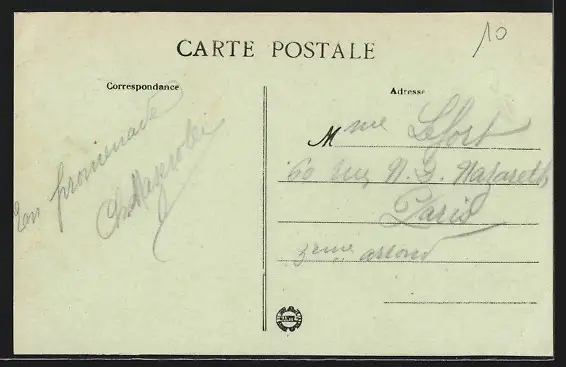 10
CARTE POSTALE
Correspondance
Adresse
En promenade
Mme Lefort
60 rue N. D. Nazareth
Paris
3eme arrond